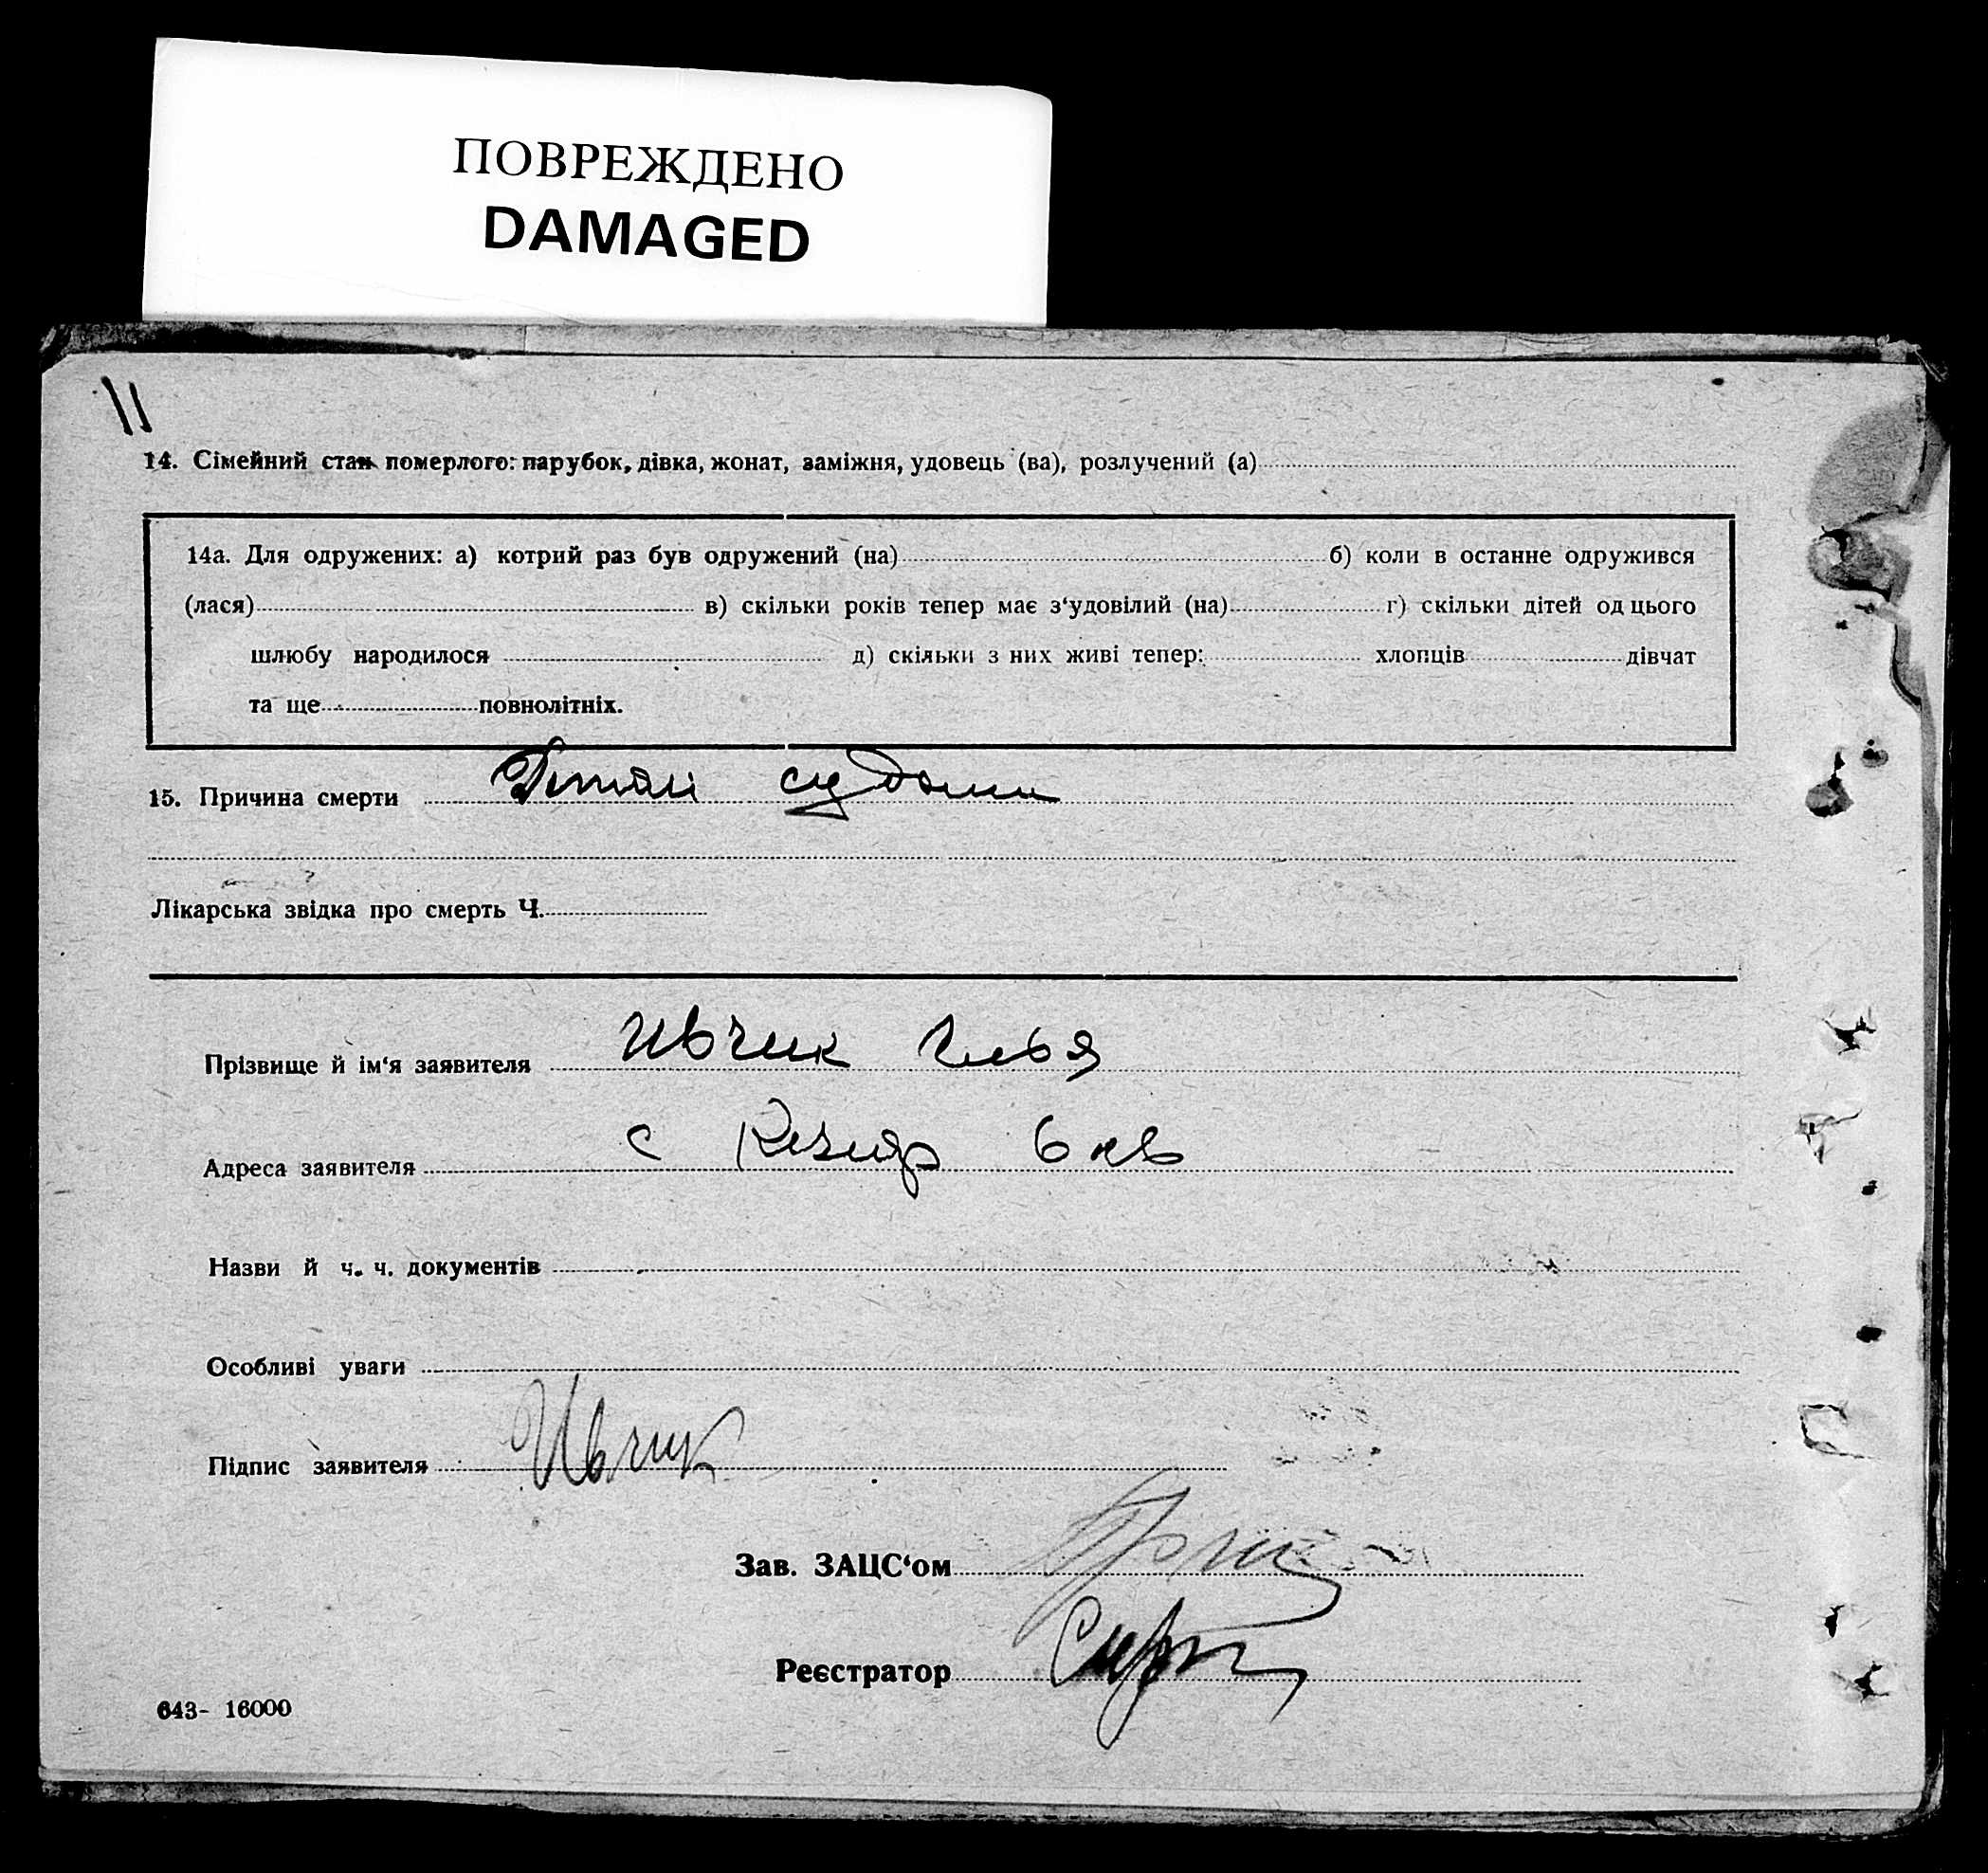 ПОВРЕЖДЕНО
DAMAGED
11
14. Сімейний стан померлого: парубок, дівка, жонат, заміжня, удовець (ва), розлучений (а)
14а. Для одружених: а) котрий раз був одружений (на) б) коли в останне одружився
(лася) в) скільки років тепер має з‘удовілий (на) г) скільки дітей од цього
шлюбу народилося д) скільки з них живі тепер: хлопців дівчат
та ще повнолітніх.
15. Причина смерти Дитячі судоми
Лікарська звідка про смерть Ч.
Прізвище й ім‘я заявителя Ивчик Илья
Адреса заявителя с 6 кв
Назви й ч. ч. документів
Особливі уваги
Підпис заявителя Ивчик
Зав. ЗАЦС‘ом
Реєстратор
643- 16000